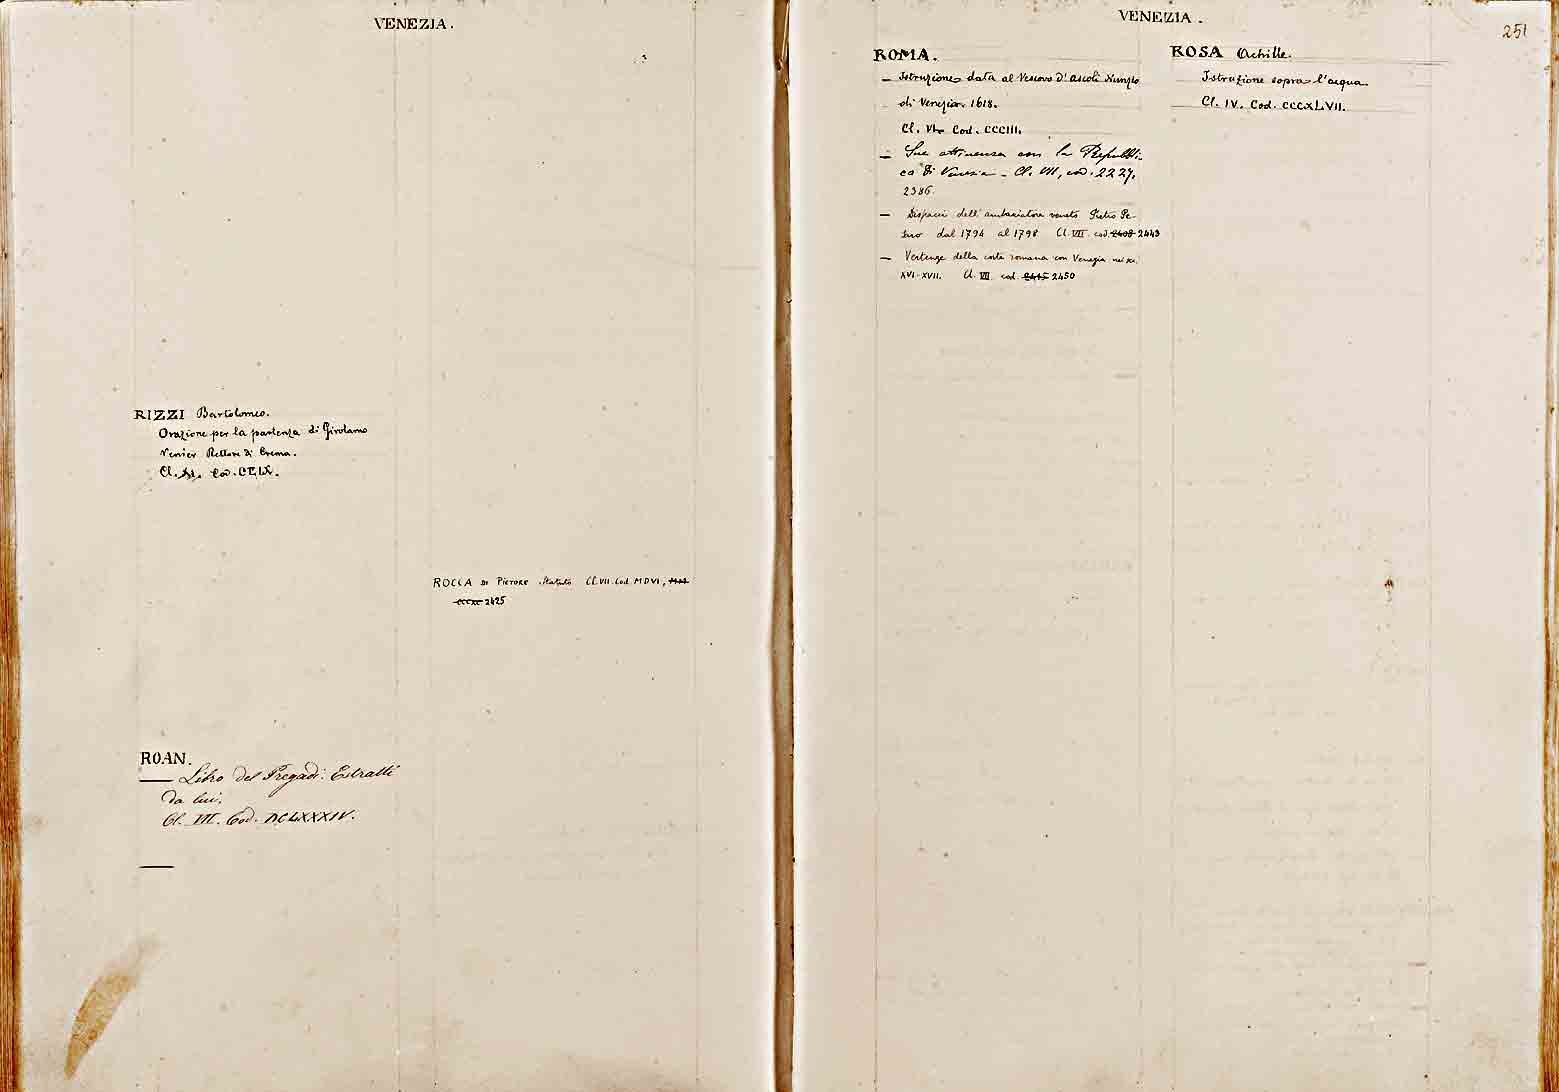 VENEZIA.
RIZZI Bartolomeo.
Orazione per la partenza di Girolamo
Venier Rettore di Crema.
Cl. XI. Cod. CCLX.
ROAN.
— Libro del Pregadi: Estratti
da lui.
Cl. VII. Cod. DCLXXXIV.
—
ROCCA di PIETORE Statuto Cl. VII. Cod. MDVI,
2425
VENEZIA.
251
ROMA.
— Istruzione data al Vescovo d'Ascoli Nunzio
di Venezia. 1618.
Cl. VI. Cod. CCCIII.
— Sue attinenze con la Repubbli-
ca di Venezia - Cl. VII, cod. 2227,
2386.
— Dispacci dell'ambasciatore veneto Pietro Pe-
saro dal 1794 al 1798 Cl. VII. cod. 2408 2443
— Vertenze della corte romana con Venezia nei sec.
XVI-XVII. Cl. VII. cod. 2415 2450
ROSA Achille.
Istruzione sopra l'acqua.
Cl. IV. Cod. CCCXLVII.